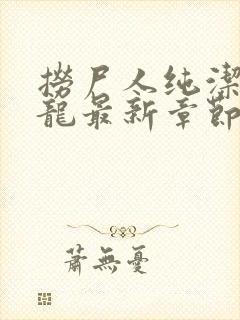 撈尸人纯潔
龍最新章節
蕭無憂